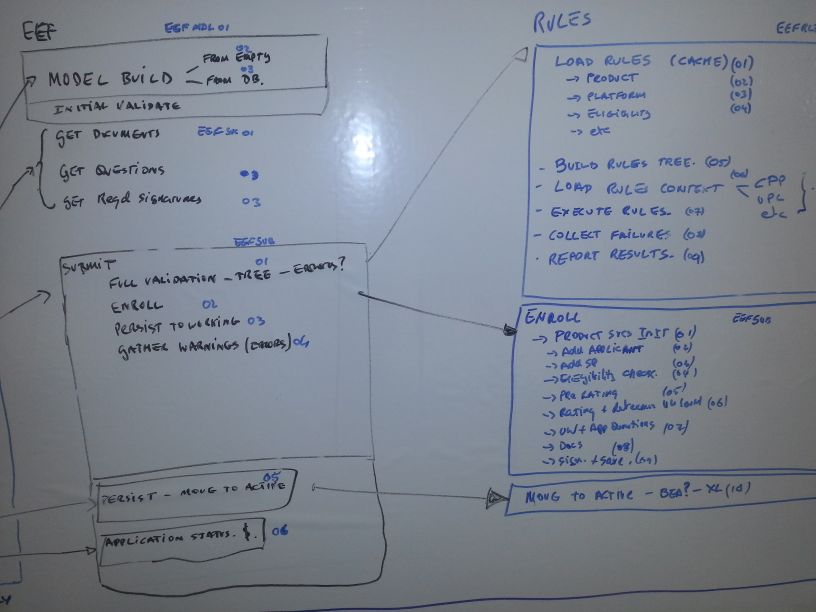 EEF
EEFMDL 01
02
FROM EMPTY
MODEL BUILD
03
FROM DB.
INITIAL VALIDATE
GET DOCUMENTS
01
GET QUESTIONS
GET Reqd SIGNATURES 03
EEFSUB
SUBMIT
01
FULL VALIDATION - TREE - ERRORS?
ENROLL 02
PERSIST TO WORKING 03
GATHER WARNINGS (ERRORS) 04
05
PERSIST - MOVE TO ACTIVE
APPLICATION STATUS. 06
RULES
LOAD RULES (CACHE) (01)
→ PRODUCT (02)
→ PLATFORM (03)
→ ELIGIBILITY (04)
→ etc
- BUILD RULES TREE. (05)
- LOAD RULES CONTEXT (06)
etc
- EXECUTE RULES. (07)
- COLLECT FAILURES (08)
- REPORT RESULTS. (09)
ENROLL
EEFSUB
→ PRODUCT SVCS INIT (01)
→ Add APPLICANT (02)
→ Add SP
→ Eligibility CHECK. (04)
→ PRE RATING (05)
→ Rating + (06)
→ UW + App Questions
→ Docs (08)
→ Sign + Save. (09)
MOVE TO ACTIVE - BEA? - XL (10)